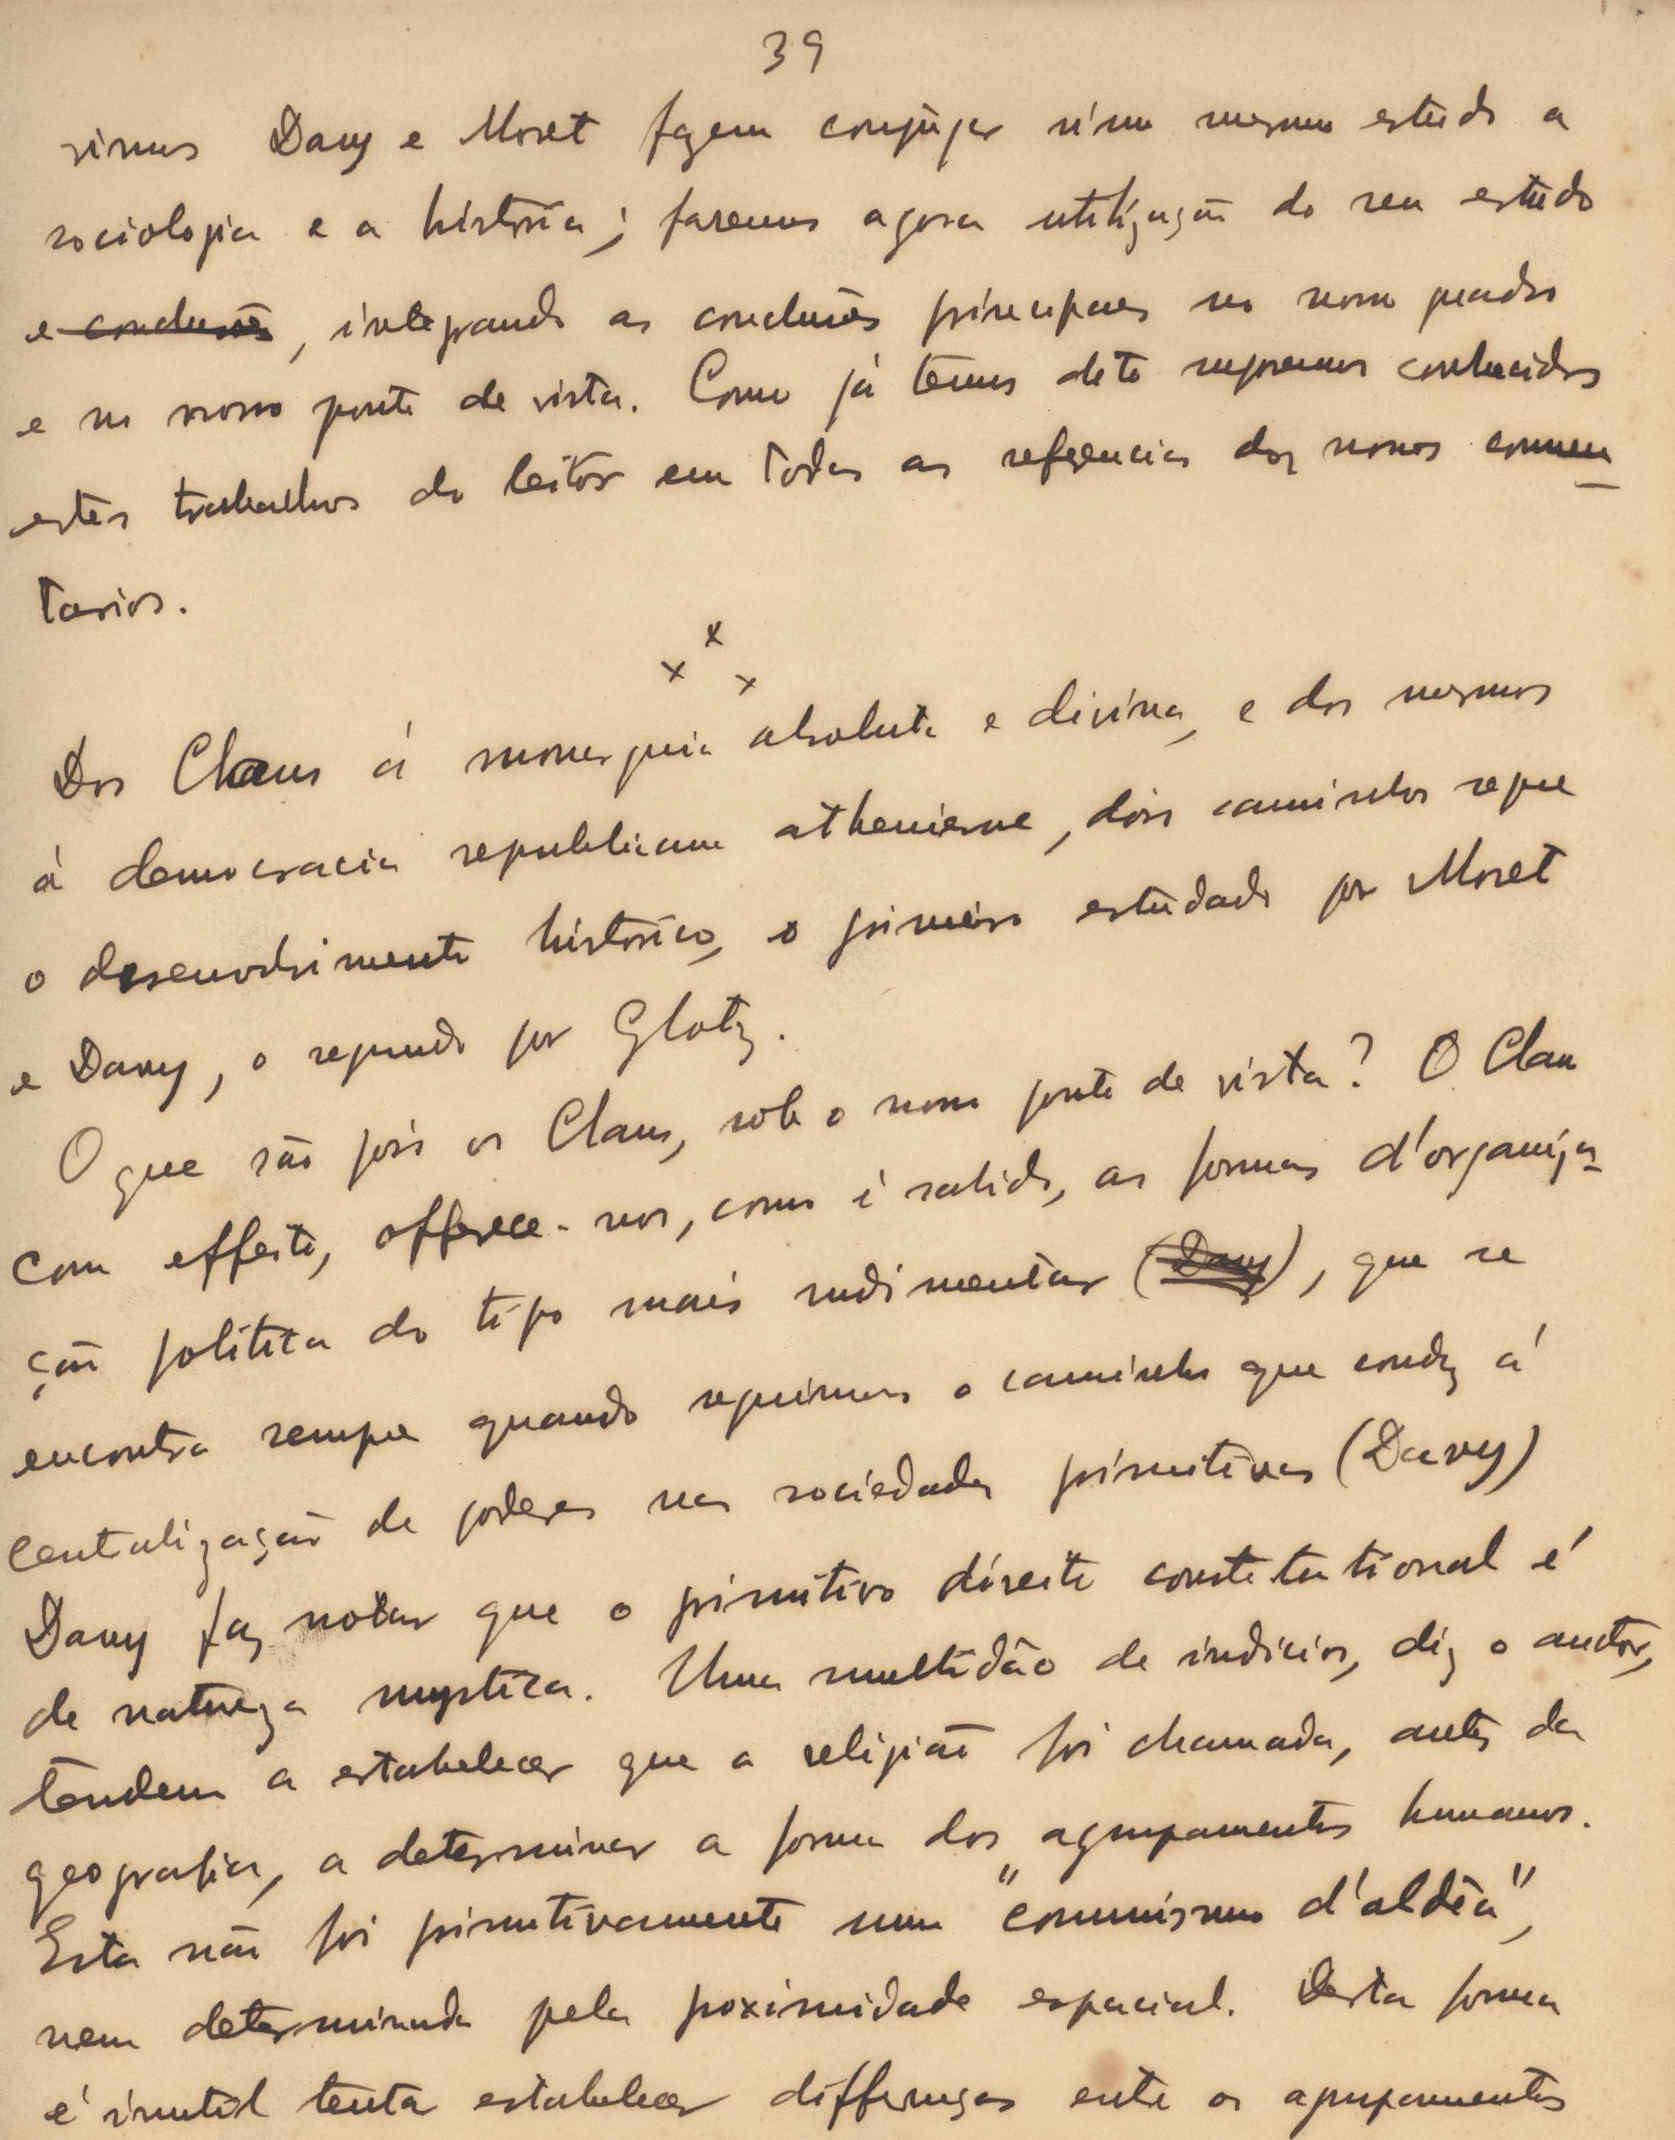 39
simos Davy e Moret fazem conjugar n'um mesmo estudo a
sociologia e a história; faremos agora utilização do seu estudo
e conclusões, integrando as conclusões principaes no nosso quadro
e no nosso ponto de vista. Como já temos dito supremos conhecidos
estes trabalhos do leitor em todas as referencias dos nossos commen
tarios.
x x x
Dos Clans á monarquia absoluta e divina, e dos mesmos
á democracia republicana atheniense, dois caminhos segue
o desenvolvimento histórico, o primeiro estudado por Moret
e Davy, o segundo por Glotz.
O que são pois os Clans, sob o nosso ponto de vista? O Clan
com effeito, offerece-nos, como é sabido, as formas d'organiza-
ção politica do tipo mais rudimentar (Davy), que se
encontra sempre quando seguimos o caminho que conduz á
centralização de poderes nas sociedades primitivas (Davy)
Davy faz notar que o primitivo direito constitutional é
de natureza mystica. Uma multidão de indicios, diz o auctor,
tendem a estabelecer que a religião foi chamada, antes da
geografia, a determinar a forma dos agrupamentos humanos.
Esta não foi primitivamente um "communismo d'aldêa",
nem determinada pela proximidade espacial. Desta forma
é inutil tentar estabelecer differenças entre os agrupamentos